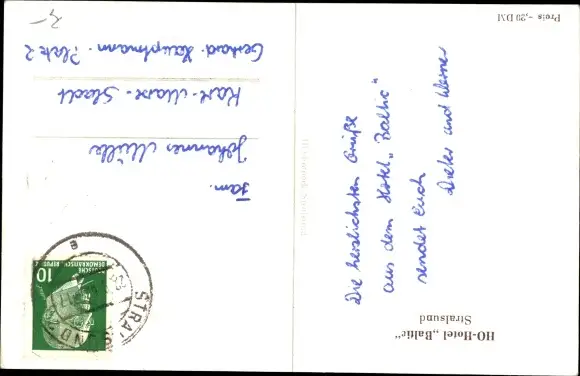 HO-Hotel „Baltic"
Stralsund
Die herzlichsten Grüße
aus dem Hotel „Baltic"
sendet Euch
Dieter und Werner
Preis -,20 DM
Fam.
Johannes Müller
Karl-Marx-Stadt
Gerhard-Hauptmann-Platz 2
10
DEUTSCHE
DEMOKRATISCHE REPUBLIK
STRALSUND
e